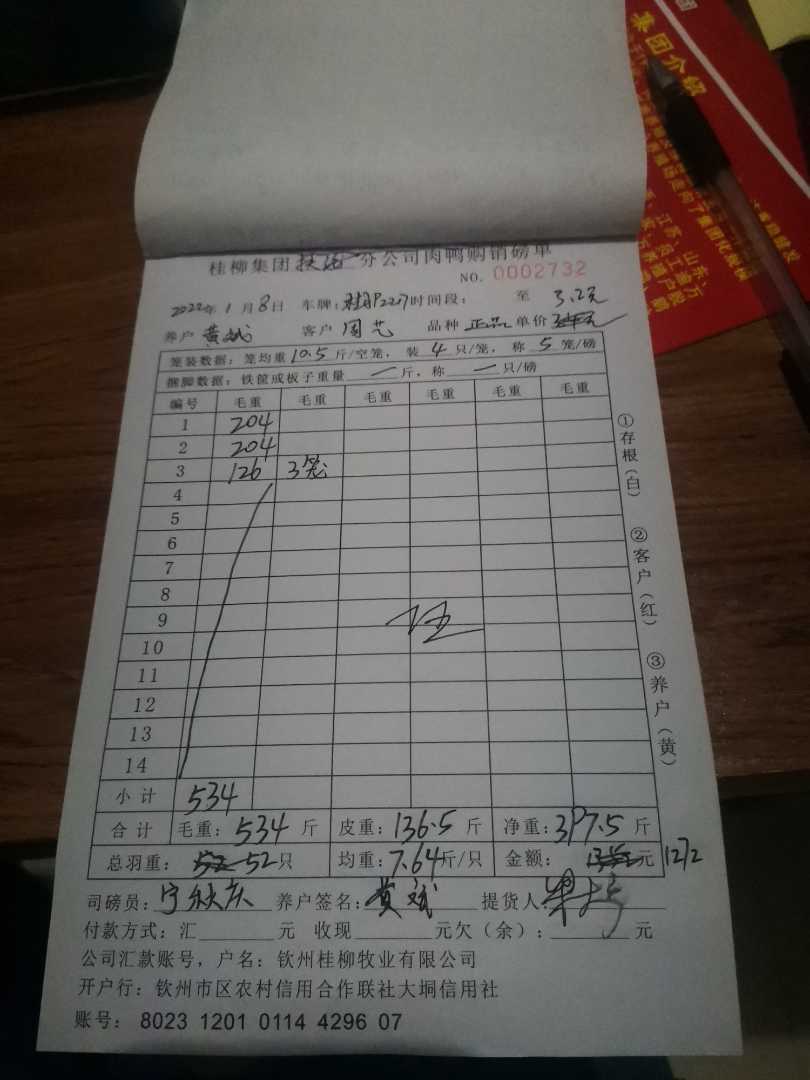 集团介绍
桂柳集团扶绥分公司肉鸭购销磅单
NO. 0002732
2022年1月8日 车牌: 时间段: 至 3.2元
养户 黄斌 客户 周艺 品种 正品 单价
笼装数据: 笼均重 10.5 斤/空笼, 装 4 只/笼, 称 5 笼/磅
捆脚数据: 铁筐或板子重量 一 斤, 称 一 只/磅
编号 毛重 毛重 毛重 毛重 毛重 毛重
1 204
2 204
3 126 3笼
4
5
6
7
8
9
10
11
12
13
14
小计 534
合计 毛重: 534 斤 皮重: 136.5 斤 净重: 397.5 斤
总羽重: 52只 均重: 7.64斤/只 金额: 元 1272
司磅员: 养户签名: 黄斌 提货人:
付款方式: 汇 元 收现 元欠(余): 元
公司汇款账号, 户名: 钦州桂柳牧业有限公司
开户行: 钦州市区农村信用合作联社大垌信用社
账号: 8023 1201 0114 4296 07
①存根(白)
②客户(红)
③养户(黄)